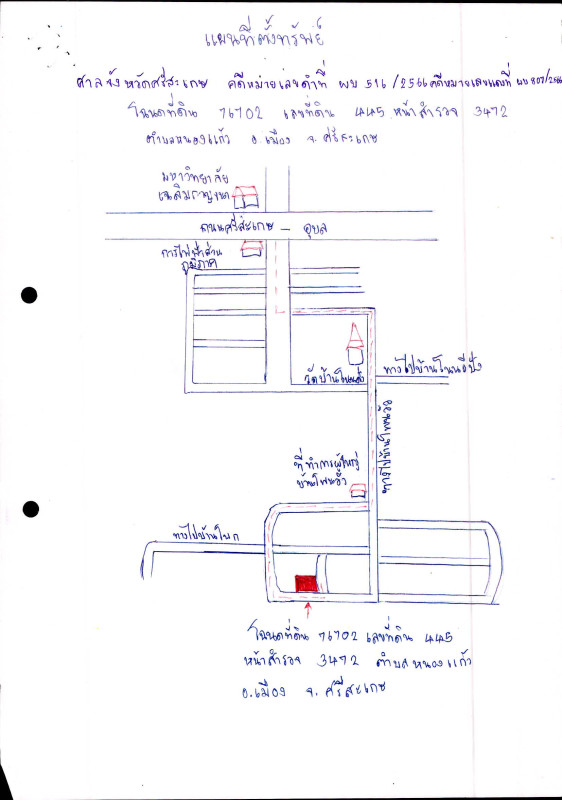 แผนที่ตั้งทรัพย์
ศาลจังหวัดศรีสะเกษ คดีหมายเลขดำที่ ผบ 516/2566 คดีหมายเลขแดงที่ ผบ 807/2566
โฉนดที่ดิน 76702 เลขที่ดิน 445 หน้าสำรวจ 3472
ตำบลหนองแก้ว อ.เมือง จ.ศรีสะเกษ
มหาวิทยาลัย
เฉลิมกาญจนา
ถนนศรีสะเกษ - อุบล
การไฟฟ้าส่วน
ภูมิภาค
วัดบ้าน
ทางไปบ้านโนนอีปัง
ที่ทำการผู้ใหญ่
ทางไปบ้านโนก
โฉนดที่ดิน 76702 เลขที่ดิน 445
หน้าสำรวจ 3472 ตำบลหนองแก้ว
อ.เมือง จ.ศรีสะเกษ